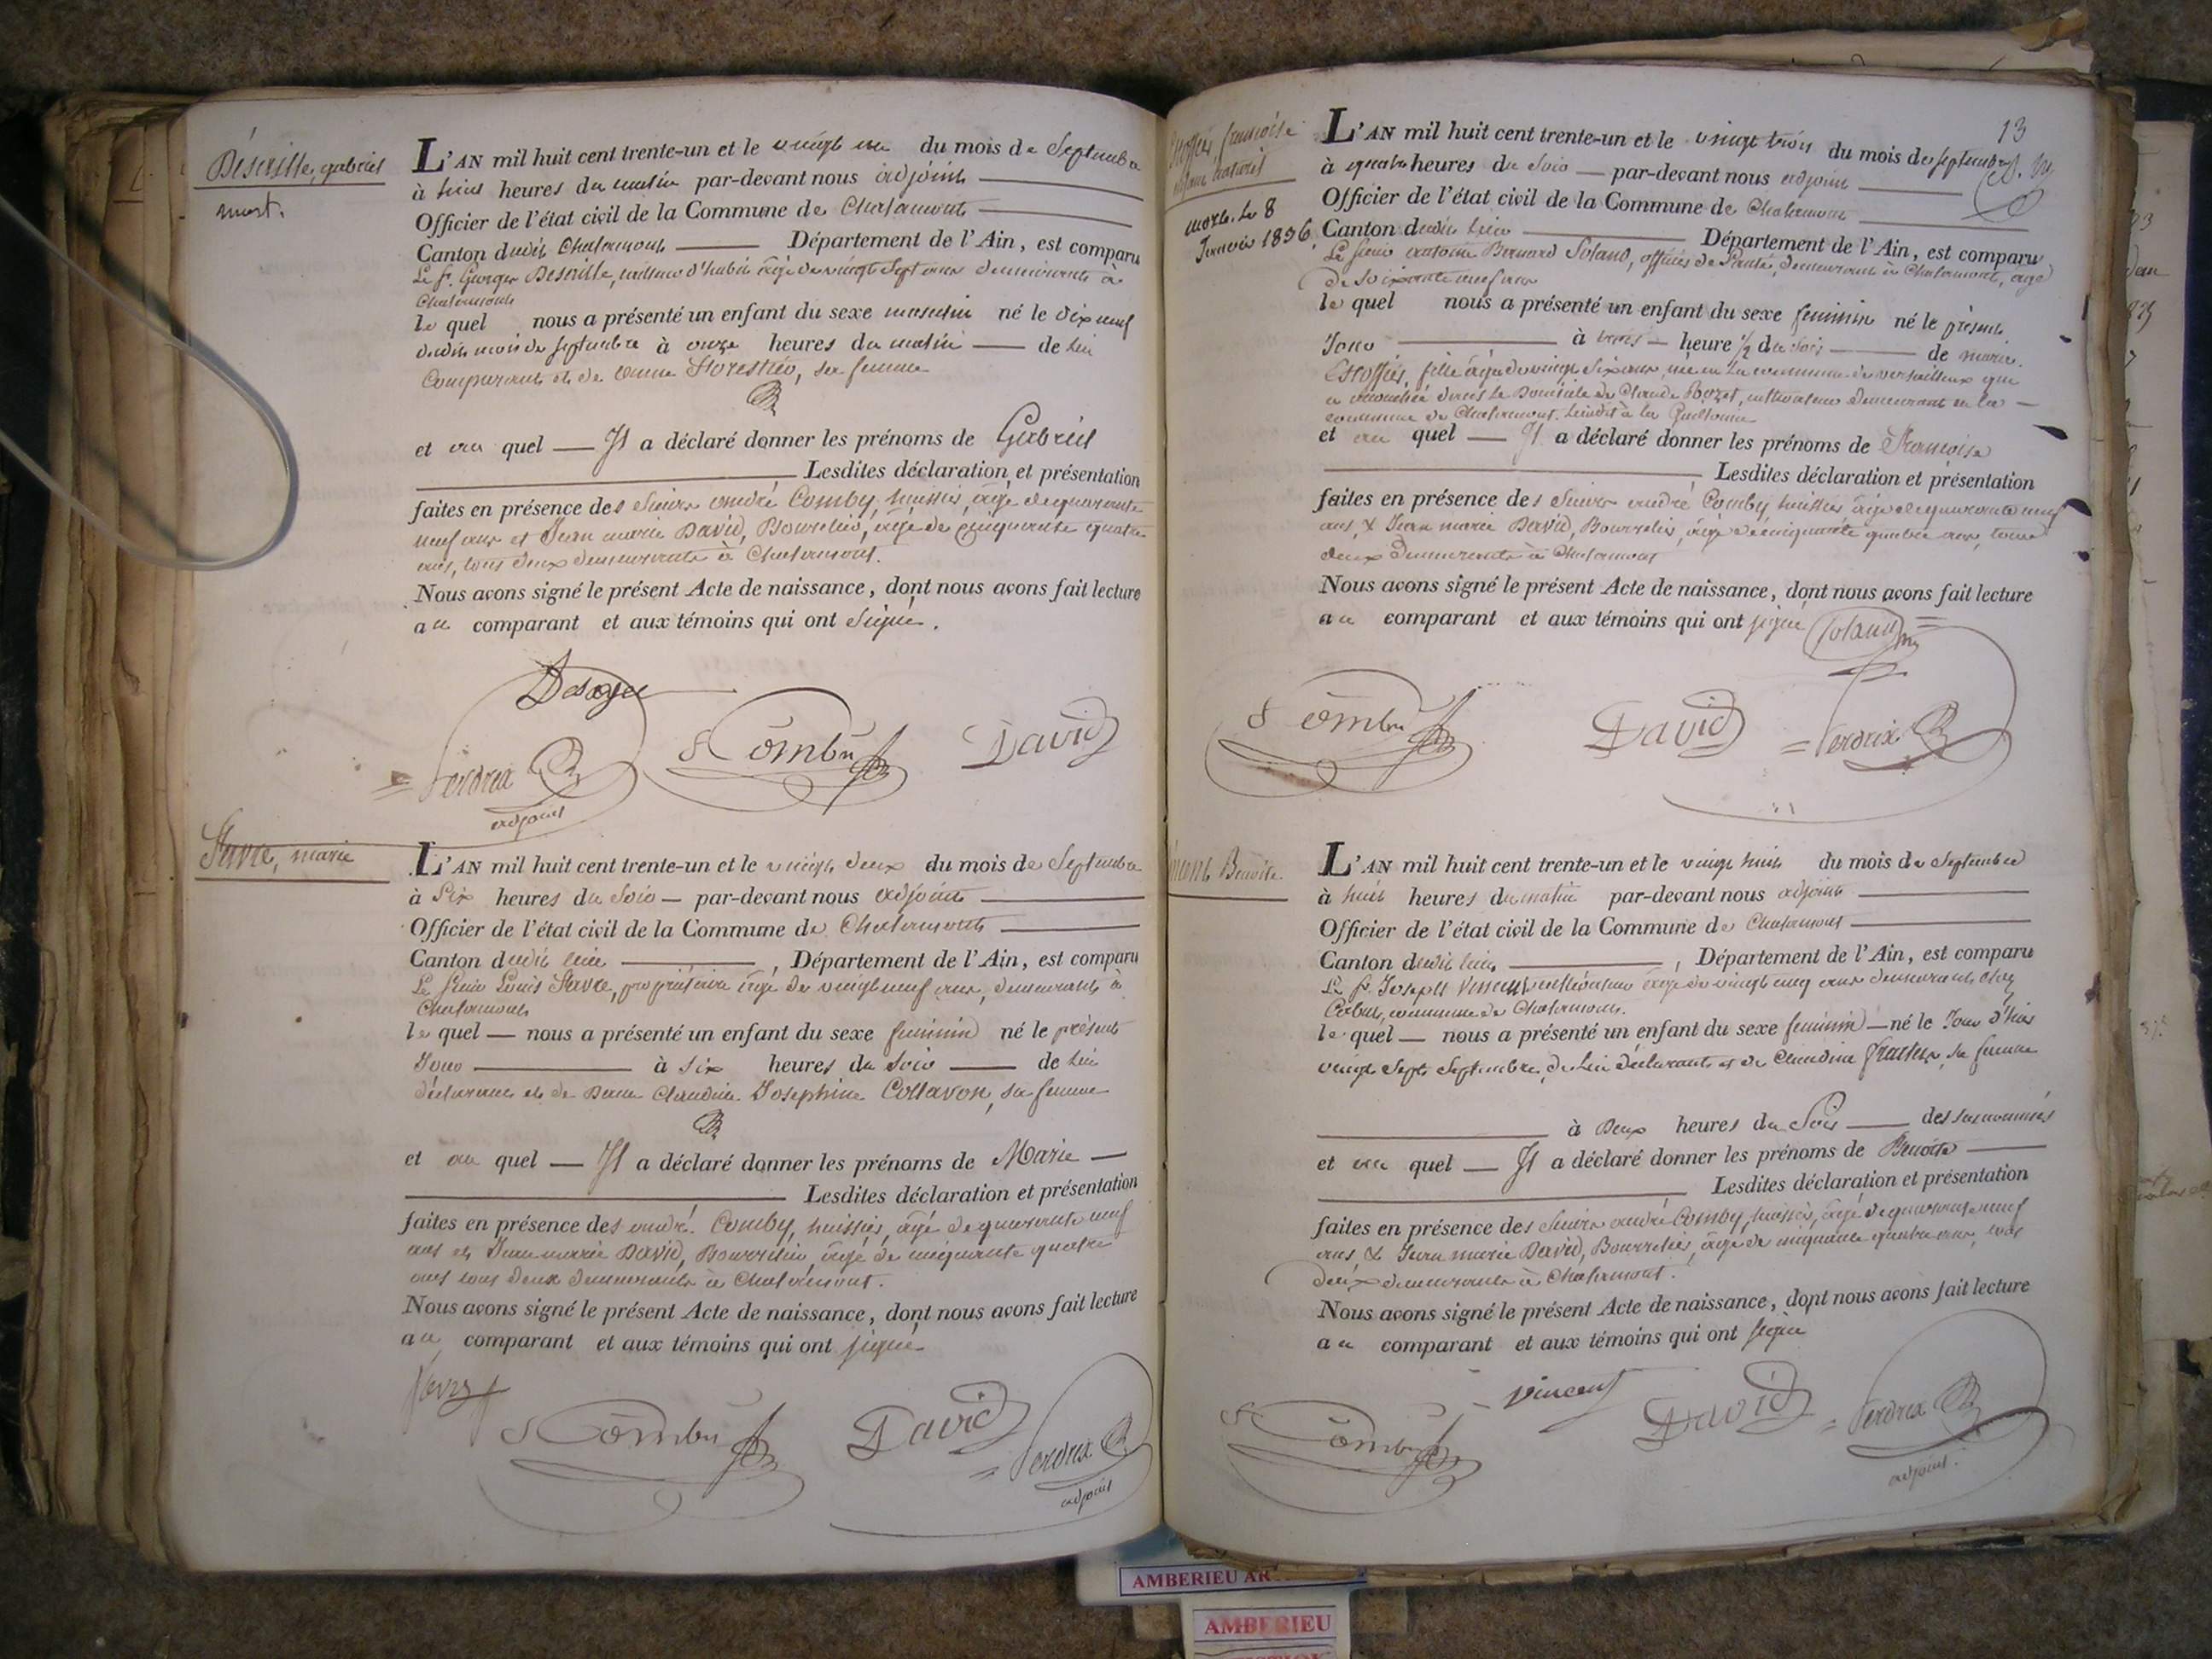 Déserille, gabriel
mort.
L'AN mil huit cent trente-un et le vingt un du mois de Septembre
à huit heures du matin par-devant nous adjoint
Officier de l'état civil de la Commune de Chalamont
Canton dudit Chalamont Département de l'Ain, est comparu
Le Sr. Georges âgé de vingt sept ans demeurant à
Chalamont
le quel nous a présenté un enfant du sexe masculin né le dix neuf
dudit mois de septembre à onze heures du matin de lui
Comparant et de sa femme
et au quel Il a déclaré donner les prénoms de Gabriel
Lesdites déclaration et présentation
faites en présence des Sieurs andré Comby, huissier, âgé de quarante
neuf ans et Jean marie David, Bourrelier, âgé de cinquante quatre
ans, tous deux demeurants à Chalamont.
Nous avons signé le présent Acte de naissance, dont nous avons fait lecture
au comparant et aux témoins qui ont Signé.
Comby David
Perdrix
adjoint
Favre, marie
L'AN mil huit cent trente-un et le vingt deux du mois de Septembre
à Six heures du Soir par-devant nous adjoint
Officier de l'état civil de la Commune de Chalamont
Canton dudit lieu, Département de l'Ain, est comparu
Le Sieur Louis Favre, propriétaire âgé de vingt neuf ans, demeurant à
Chalamont
le quel nous a présenté un enfant du sexe feminin né le présent
Jour à six heures du Soir de lui
déclarant et de Dame Claudine Josephine Collavon, sa femme
et au quel Il a déclaré donner les prénoms de Marie
Lesdites déclaration et présentation
faites en présence des andré Comby, huissier, âgé de quarante neuf
ans et Jean marie David, Bourrelier, âgé de cinquante quatre
ans tous deux demeurants à Chalamont.
Nous avons signé le présent Acte de naissance, dont nous avons fait lecture
au comparant et aux témoins qui ont signé
Comby David Perdrix
adjoint
13
françoise
enfant naturel
morte le 8
Janvier 1836.
L'AN mil huit cent trente-un et le vingt trois du mois de septembre
à quatre heures du Soir par-devant nous adjoint
Officier de l'état civil de la Commune de Chalamont
Canton dudit lieu Département de l'Ain, est comparu
Le Sieur antoine Bernard Soland, officier de Santé, demeurant à Chalamont, agé
de Soixante neuf ans
le quel nous a présenté un enfant du sexe feminin né le présent
Jour à trois heure ½ du Soir de marie
fille âgée de vingt Six ans, née en la commune de versailleux que
a accouchée dans le Domicile de Claude Bozet, cultivateur demeurant en la
commune de Chalamont. lieudit à la
et au quel Il a déclaré donner les prénoms de Francoise
Lesdites déclaration et présentation
faites en présence des Sieurs andré Comby huissier âgé de quarante neuf
ans, & Jean marie David, Bourrelier, âgé de cinquante quatre ans, tous
deux demeurants à Chalamont
Nous avons signé le présent Acte de naissance, dont nous avons fait lecture
au comparant et aux témoins qui ont signé Soland
Comby David Perdrix
Benoite.
L'AN mil huit cent trente-un et le vingt huit du mois de Septembre
à huit heures du matin par-devant nous adjoint
Officier de l'état civil de la Commune de Chalamont
Canton dudit lieu, Département de l'Ain, est comparu
Le Sr. Joseph Vincent cultivateur âgé de vingt cinq ans demeurant chez
commune de Chalamont.
le quel nous a présenté un enfant du sexe feminin né le Jour d'hier
vingt Sept Septembre, de lui déclarant et de Claudine sa femme
à Deux heures du Soir des susnommés
et au quel Il a déclaré donner les prénoms de Benoite
Lesdites déclaration et présentation
faites en présence des Sieurs andré Comby, huissier, âgé de quarante neuf
ans, & Jean marie David, Bourrelier, âgé de cinquante quatre ans, tous
deux demeurants à Chalamont.
Nous avons signé le présent Acte de naissance, dont nous avons fait lecture
au comparant et aux témoins qui ont signé
vincent
Comby David Perdrix
adjoint.
AMBERIEU
AMBERIEU